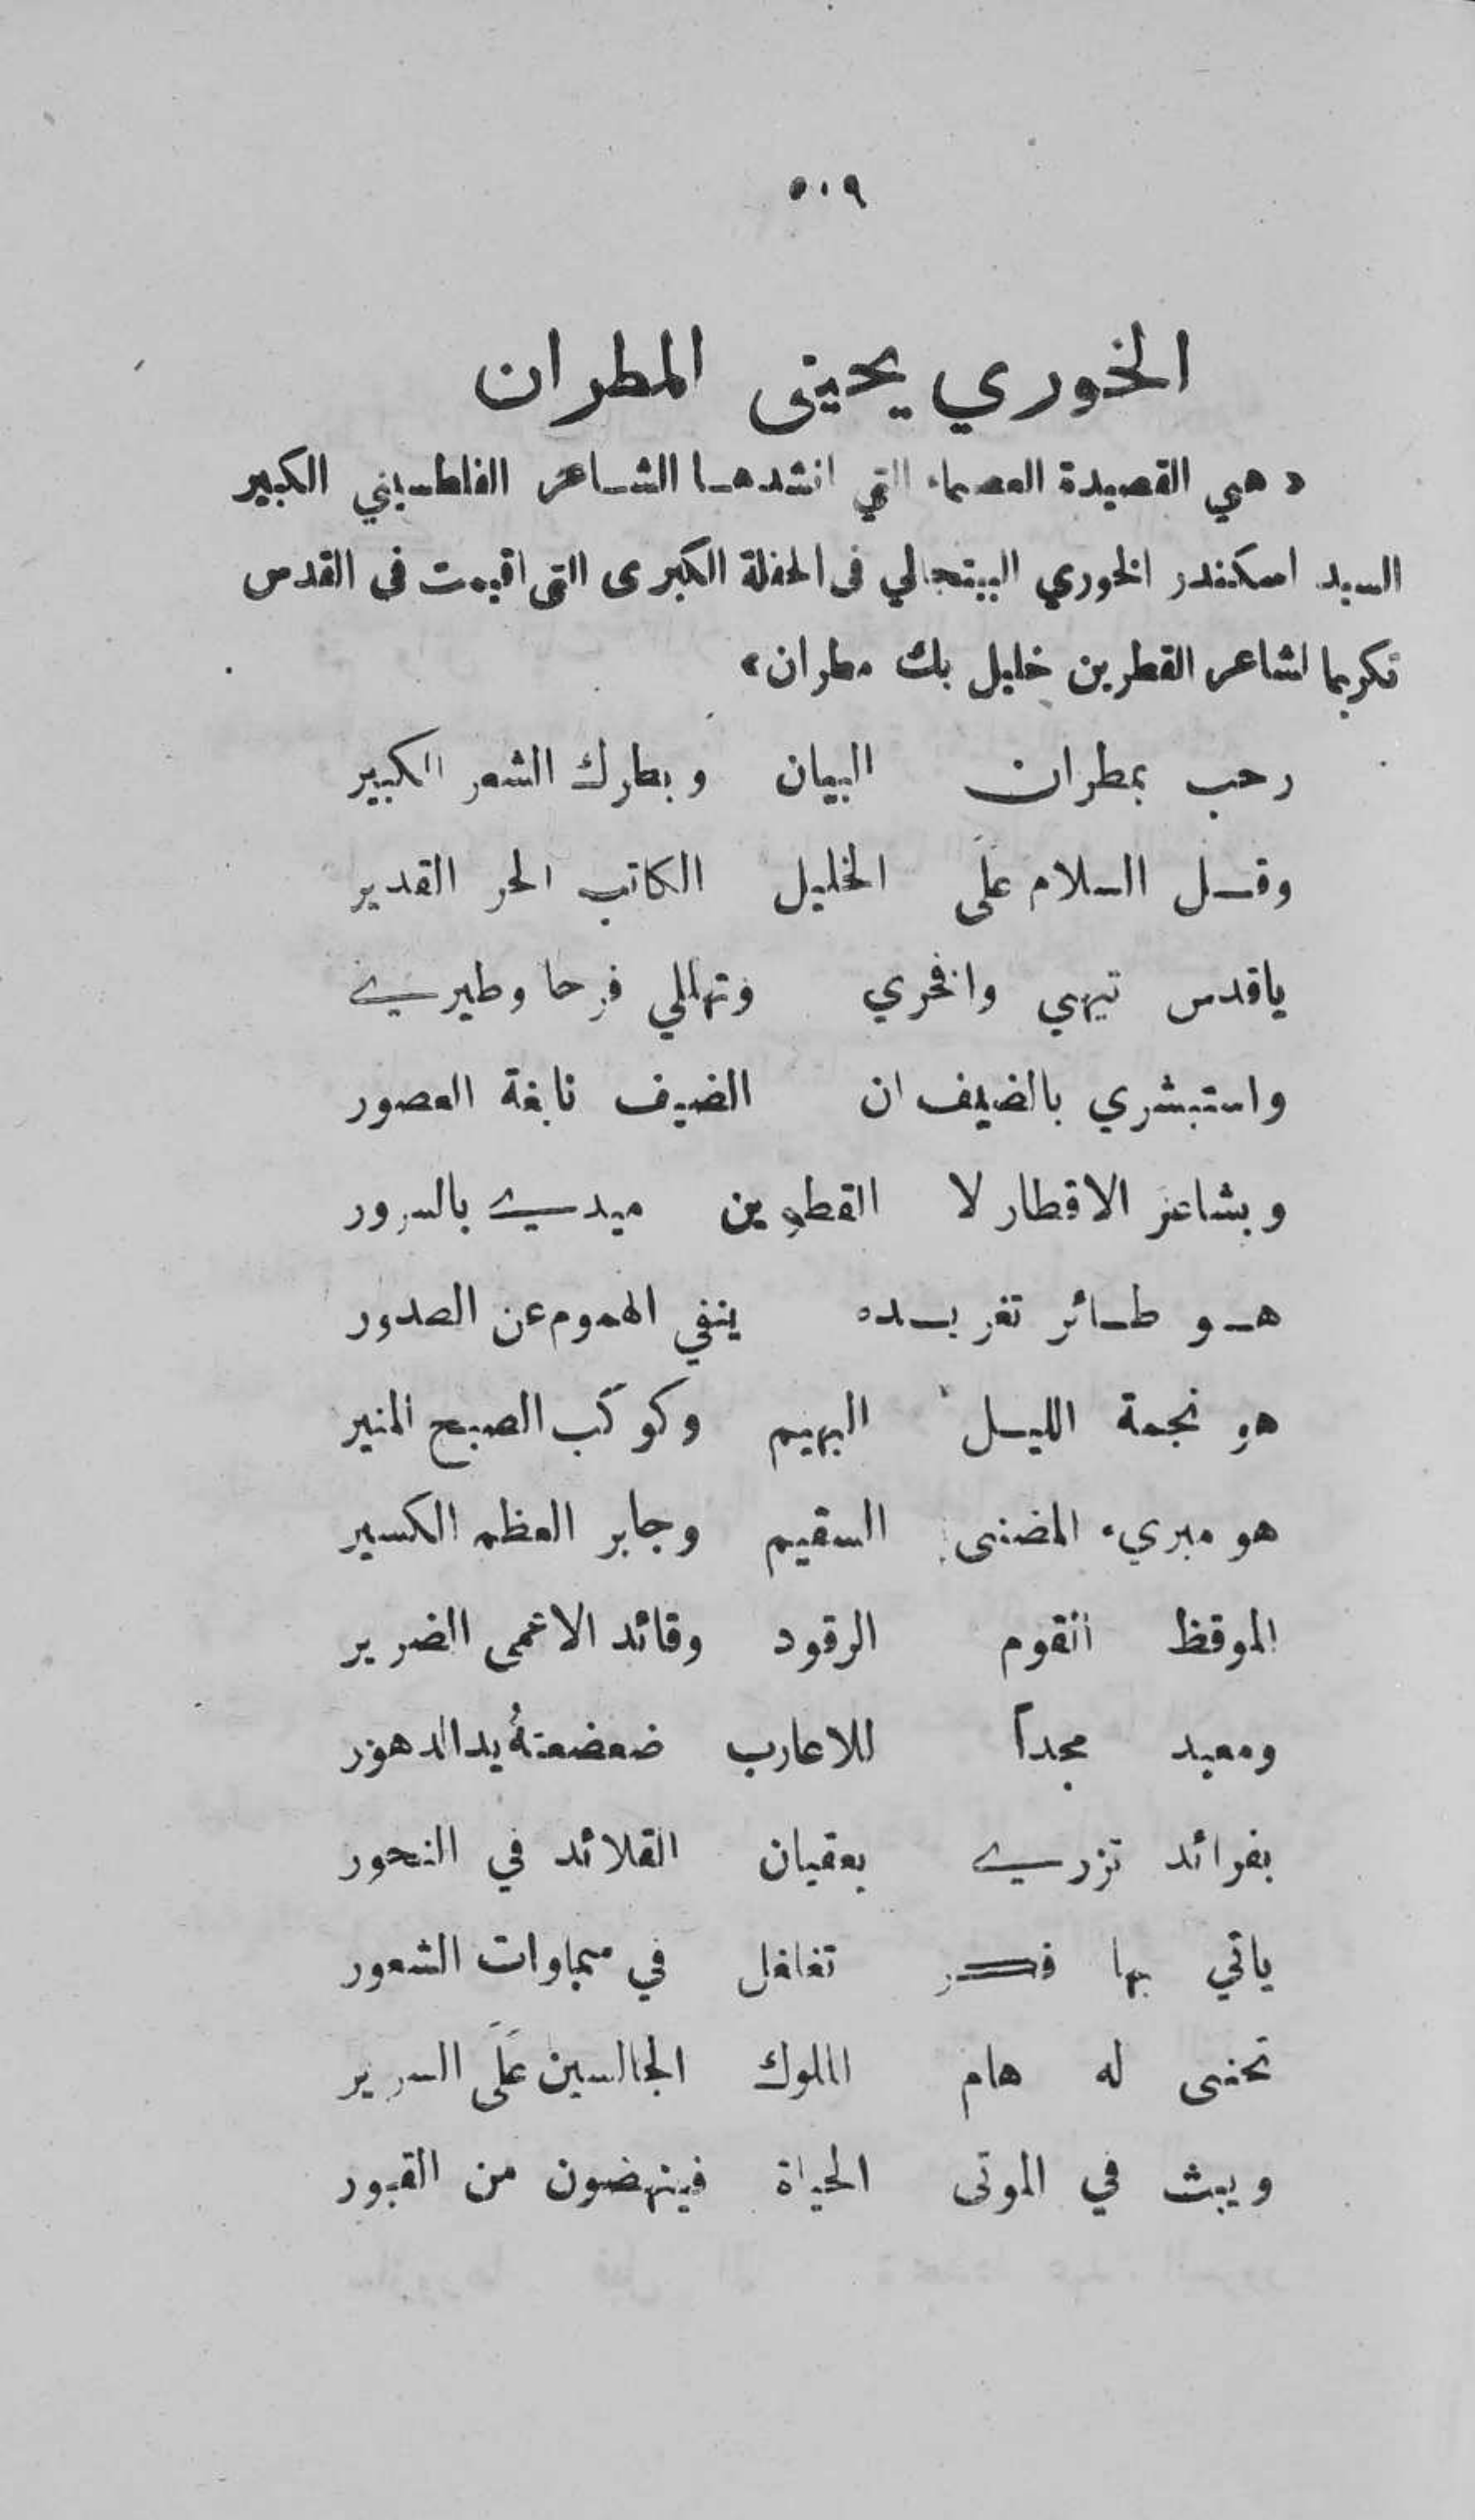 ٥٠٩
الخوري يحيى المطران
« هي القصيدة العصماء التي انشدها الشاعر الفلسطيني الكبير
السيد اسكندر الخوري البيتجالي في الحفلة الكبرى التي اقيمت في القدس
تكريما لشاعر القطرين خليل بك مطران »
رحب بمطران البيان وبطرك الشعر الكبير
وقل السلام علَى الخليل الكاتب الحر القدير
ياقدس تيهي وافخري وتهللي فرحا وطيري
واستبشري بالضيف ان الضيف نابغة العصور
وبشاعر الاقطار لا القطرين ميدي بالسرور
هو طائر تغريده ينفي الهموم عن الصدور
هو نجمة الليل البهيم وكوكب الصبح المنير
هو مبريء المضنى السقيم وجابر العظم الكسير
الموقظ القوم الرقود وقائد الاعمى الضرير
ومعيد مجداً للاعارب ضعضعتهُ يد الدهور
بفرائد تزري بعقيان القلائد في النحور
ياتي بها فكر تغلغل في سماوات الشعور
تحنى له هام الملوك الجالسين علَى السرير
ويبث في الموتى الحياة فينهضون من القبور